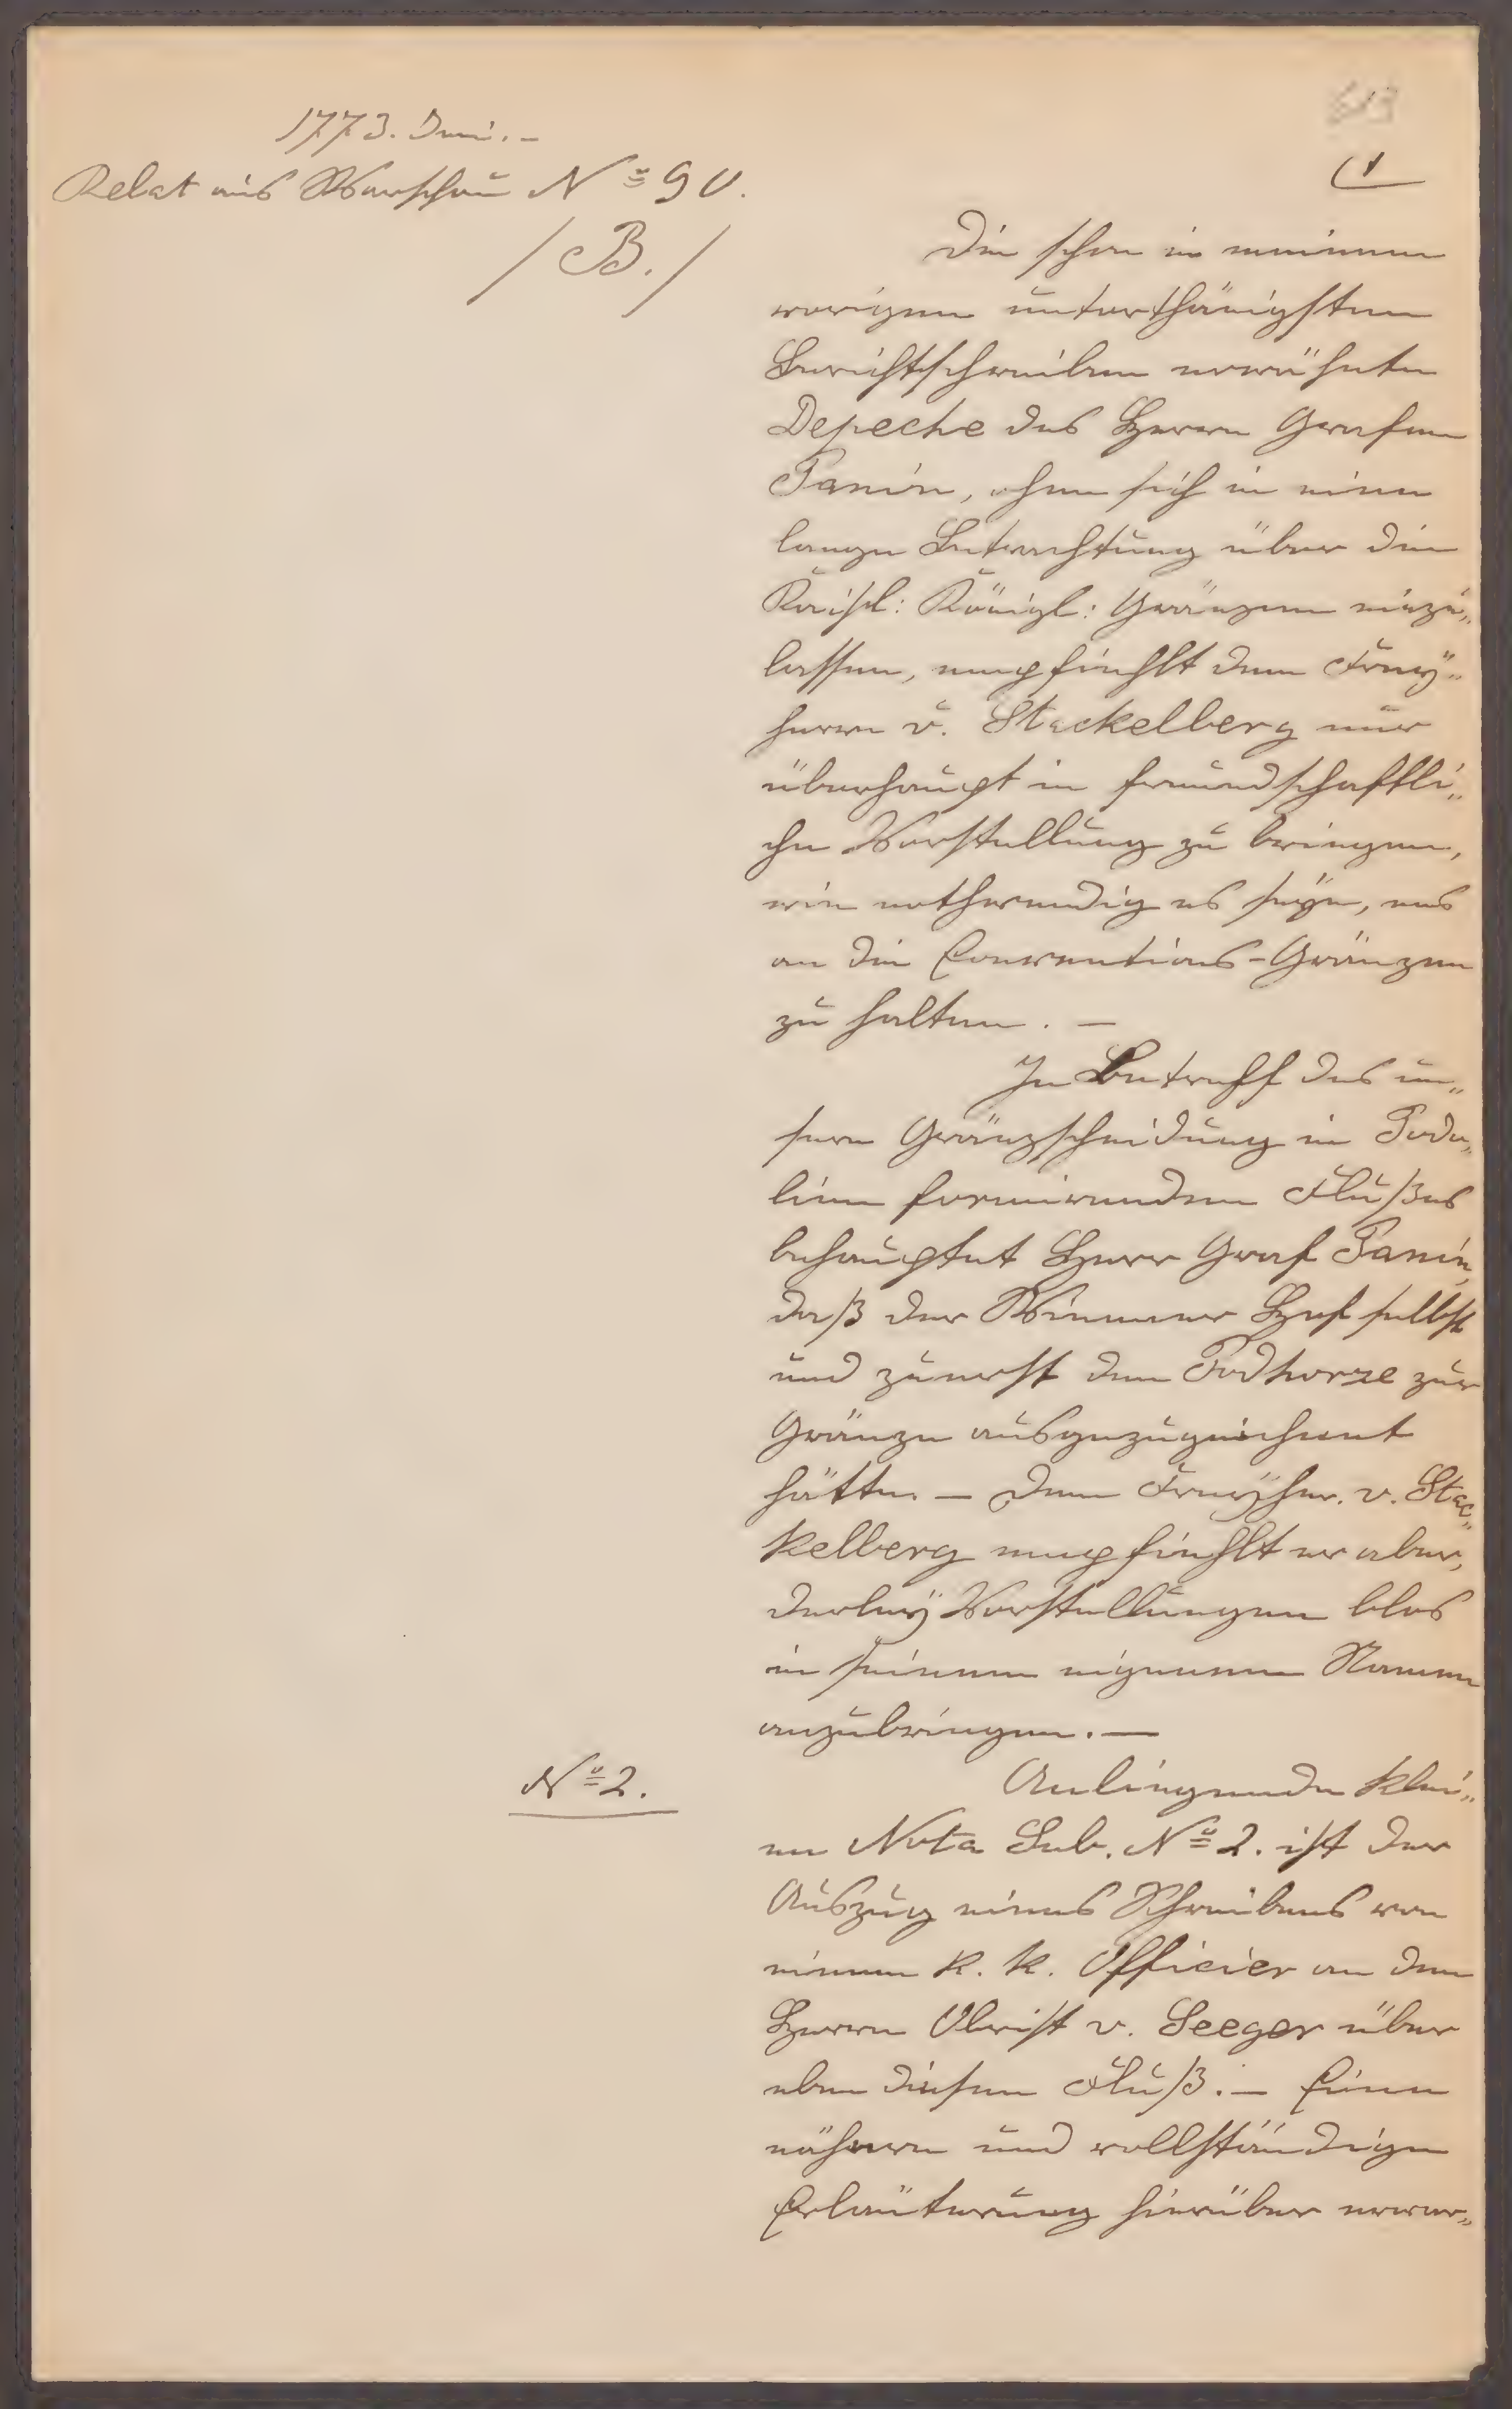 1773. Juni. –
Relat aus Warschau Nº 90.
/ B. /
1
Die schon in meinem
vorigen unterthänigsten
Berichtschreiben erwähnte
Depeche des Herrn Grafen
Panin, ohne sich in eine
lange Betrachtung über die
Kaisl: Königl: Gränzen einzu„
lassen, empfiehlt dem Frey„
herrn v. Stackelberg nur
überhaupt in freundschaftli„
che Vorstellung zu bringen,
wie nothwendig es seÿe, uns
an die Conventions-Gränzen
zu halten. –
In Betreff des un„
sere Gränzscheidung in Podo„
lien formirenden Flußes
behauptet Herr Graf Panin,
daß der Wienner Hof selbst
und zuerst den Podhorze zur
Gränze ausgezugeichnet
hätte. – Dem Freÿher. v. Stac„
kelberg empfiehlt er aber,
derleÿ Vorstellungen blos
in seinem eigenem Namen
anzubringen. –
Nº 2.
Anliegende klei„
ne Nota Sub. Nº 2. ist der
Auszug eines Schreibens von
einem k. k. Officier an den
Herrn Obrist v. Seeger über
eben diesen Fluß. – Eine
nähere und vollständige
Erläuterung hierüber erwar„